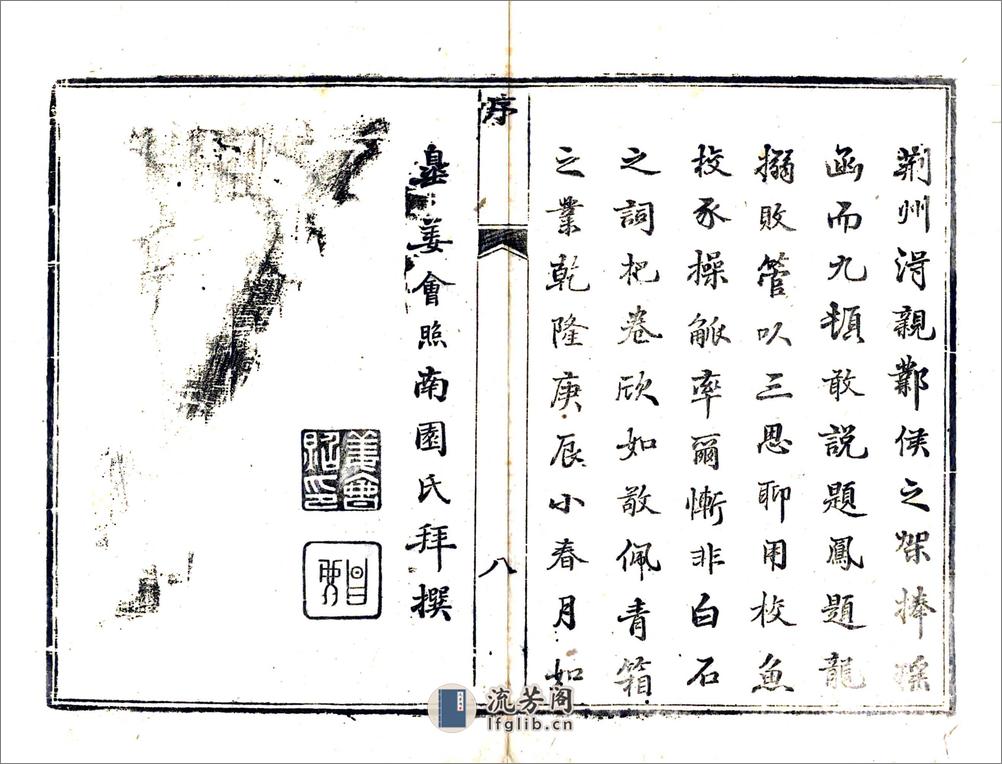 荊州淂親鄴侯之架捧瑤
函而九頓敢説題鳳題龍
搦敗管以三思聊用校魚
校豕操觚率爾慚非白石
之詞把卷欣如敬佩青箱
之業乾隆庚辰小春月如
序
八
臯姜會照南園氏拜撰
姜會炤印
流芳阁
lfglib.cn